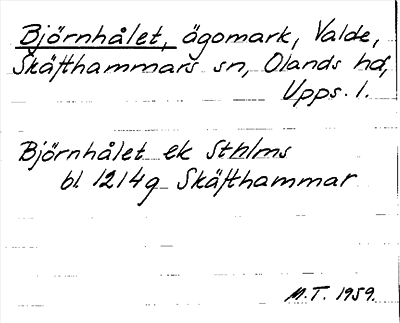 Björnhålet, ägomark, Valde,
Skäfthammars sn, Olands hd,
Upps. l.
Björnhålet ek Sthlms
bl 1214g Skäfthammar
M.T. 1959.